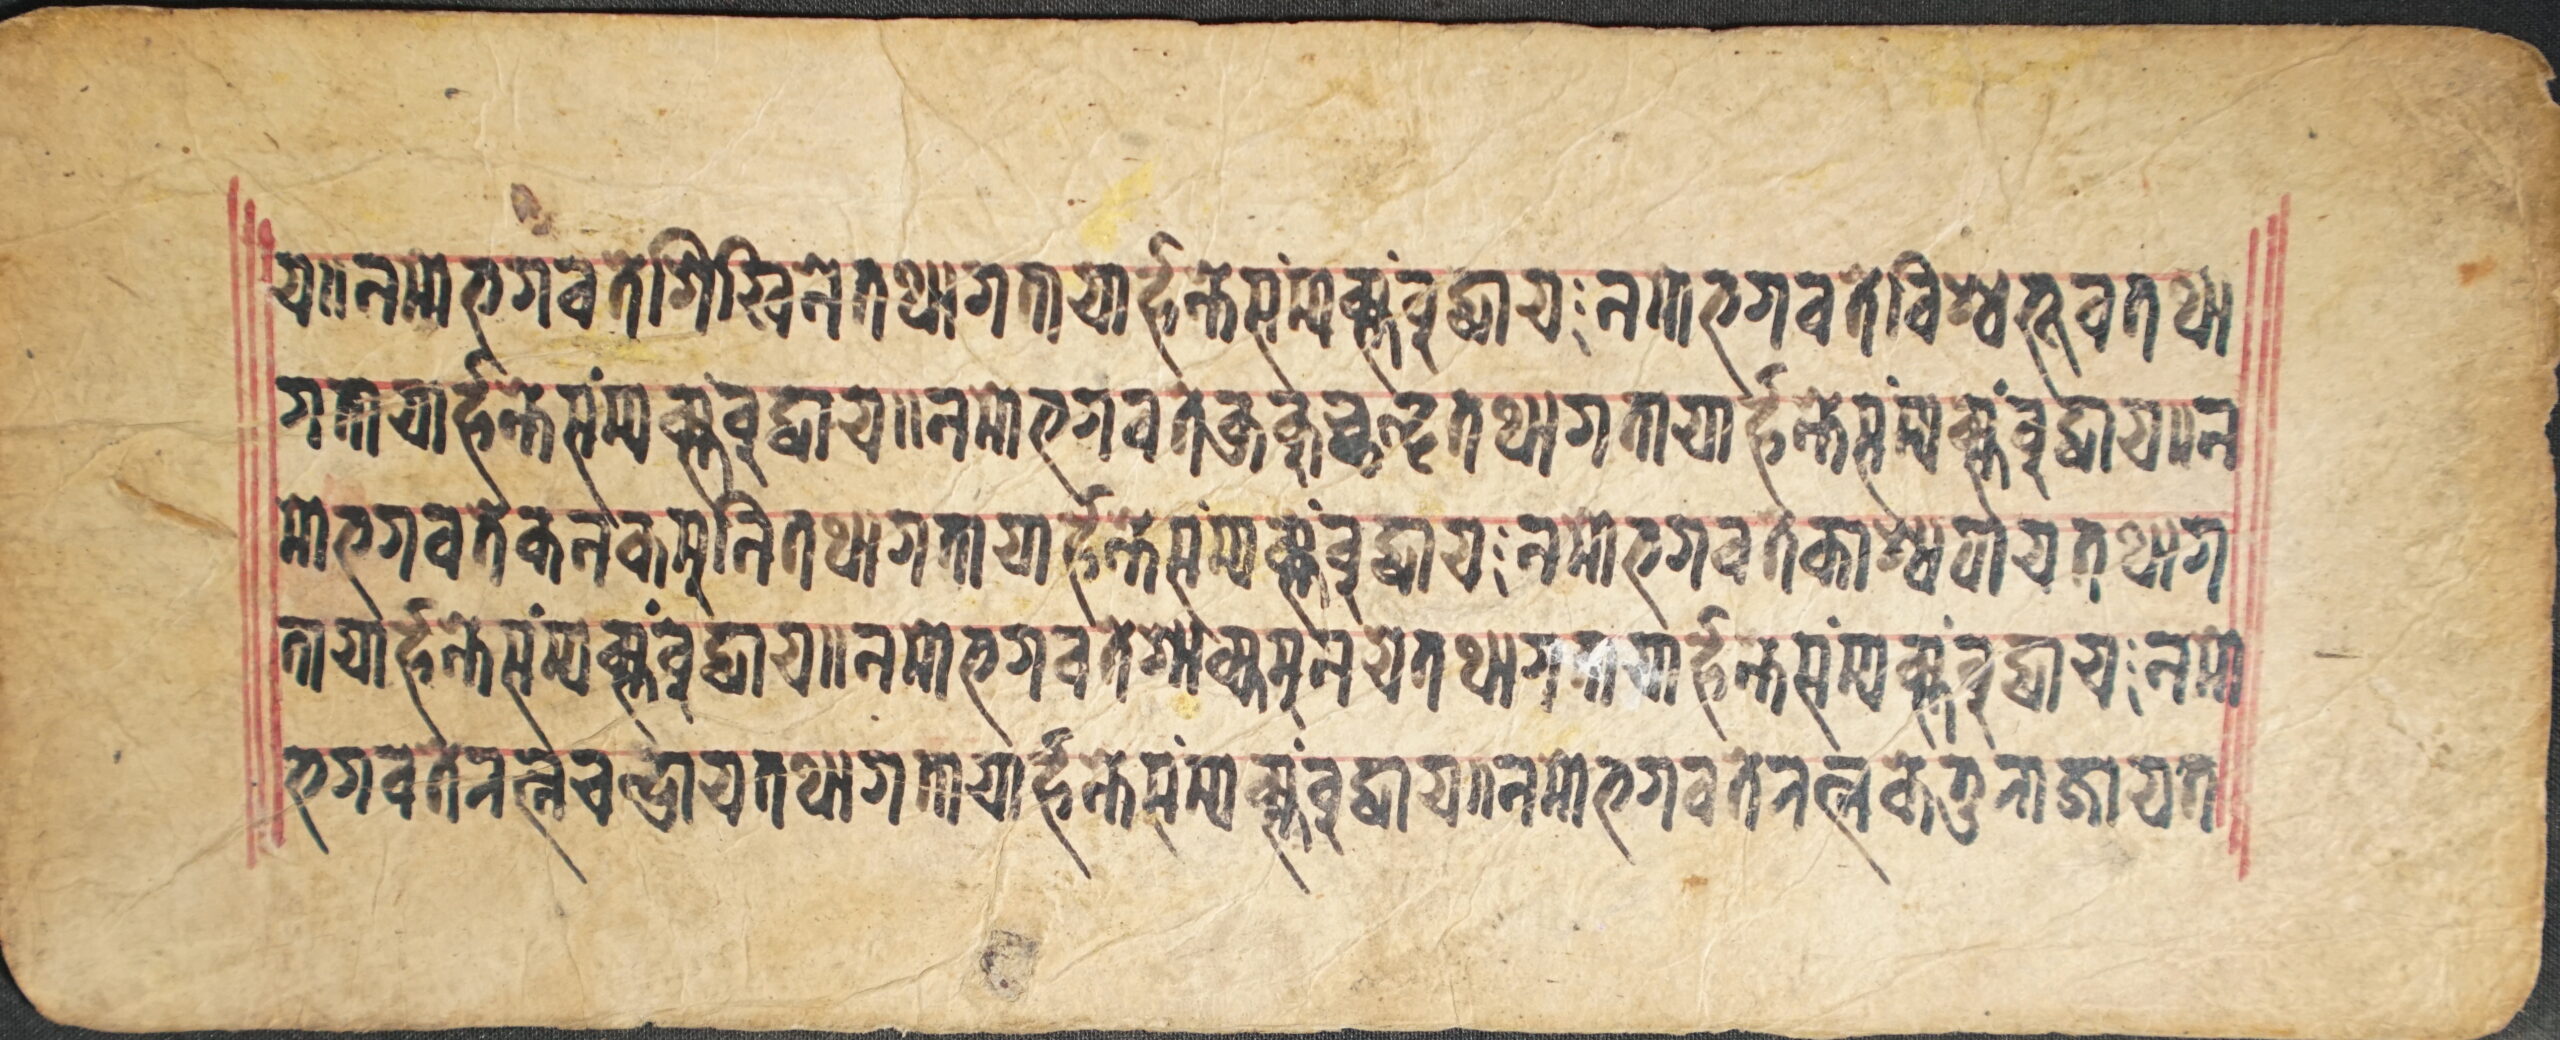 य॥नमोभगवतेशिखिनेतथागतायार्हन्तेसंम्यक्संबुद्धाय॥नमोभगवतेविश्वभूवतथा
गतायार्हन्तेसंम्यक्संबुद्धाय॥नमोभगवतेक्रकुच्छन्दतथागतायार्हन्तेसंम्यक्संबुद्धाय॥न
मोभगवतेकनकमुनितथागतायार्हन्तेसंम्यक्संबुद्धाय॥नमोभगवतेकाश्यपायतथाग
तायार्हन्तेसंम्यक्संबुद्धाय॥नमोभगवतेशाक्यमुनयेतथागतायार्हन्तेसंम्यक्संबुद्धाय॥नमो
भगवतेरत्नचन्द्रायतथागतायार्हन्तेसंम्यक्संबुद्धाय॥नमोभगवतेरत्नकेतुराजायत